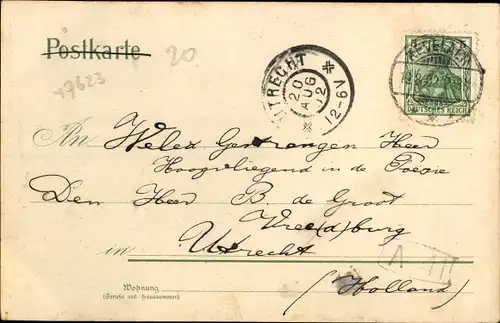 Postkarte
20
47623
UTRECHT
20
AUG
02
12-6V
KEVELAER
DEUTSCHES REICH
An Welex Gestrangen Heer
Hoogvliegend in de Poëzie
Den Heer B. de Groot
Vree(d)burg
in Utrecht
A 11
(Holland)
Wohnung
(Straße und Hausnummer)